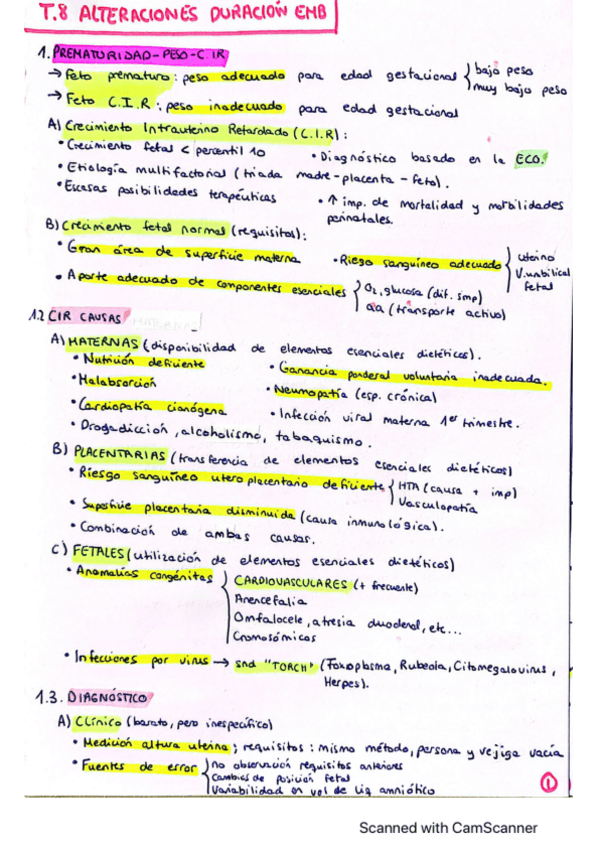 T.8 ALTERACIONES DURACIÓN EMB
1. PREMATURIDAD-PESO-C IR
→ Feto prematuro: peso adecuado para edad gestacional { bajo peso
muy bajo peso
→ Feto C.I.R: peso inadecuado para edad gestacional
A) Crecimiento Intrauterino Retardado (C.I.R):
• Crecimiento fetal < percentil 10 • Diagnóstico basado en la ECO.
• Etiología multifactorial (triada madre-placenta-feto).
• Escasas posibilidades terapéuticas • ↑ imp. de mortalidad y morbilidades
perinatales.
B) Crecimiento fetal normal (requisitos):
• Gran área de superficie materna • Riego sanguíneo adecuado { uterino
V.umbilical
fetal
• Aporte adecuado de componentes esenciales { O2, glucosa (dif. smp)
aa (transporte activo)
1.2 CIR CAUSAS
A) MATERNAS (disponibilidad de elementos esenciales dietéticos).
• Nutrición deficiente • Ganancia ponderal voluntaria inadecuada.
• Malabsorción • Neumopatía (esp. crónica)
• Cardiopatía cianógena • Infección viral materna 1er trimestre.
• Drogadicción, alcoholismo, tabaquismo.
B) PLACENTARIAS (transferencia de elementos esenciales dietéticos)
• Riesgo sanguíneo utero placentario deficiente { HTA (causa + imp)
Vasculopatía
• Superficie placentaria disminuida (causa inmunológica).
• Combinación de ambas causas.
C) FETALES (utilización de elementos esenciales dietéticos)
• Anomalías congénitas { CARDIOVASCULARES (+ frecuente)
Anencefalia
Omfalocele, atresia duodenal, etc...
Cromosómicos
• Infecciones por virus → snd "TORCH" (Toxoplasma, Rubeola, Citomegalovirus,
Herpes).
1.3. DIAGNÓSTICO
A) Clínico (barato, pero inespecífico)
• Medición altura uterina; requisitos: mismo método, persona y vejiga vacía
• Fuentes de error { no observación requisitos anteriores
Cambios de posición fetal
Variabilidad en vol de liq amniótico
1
Scanned with CamScanner